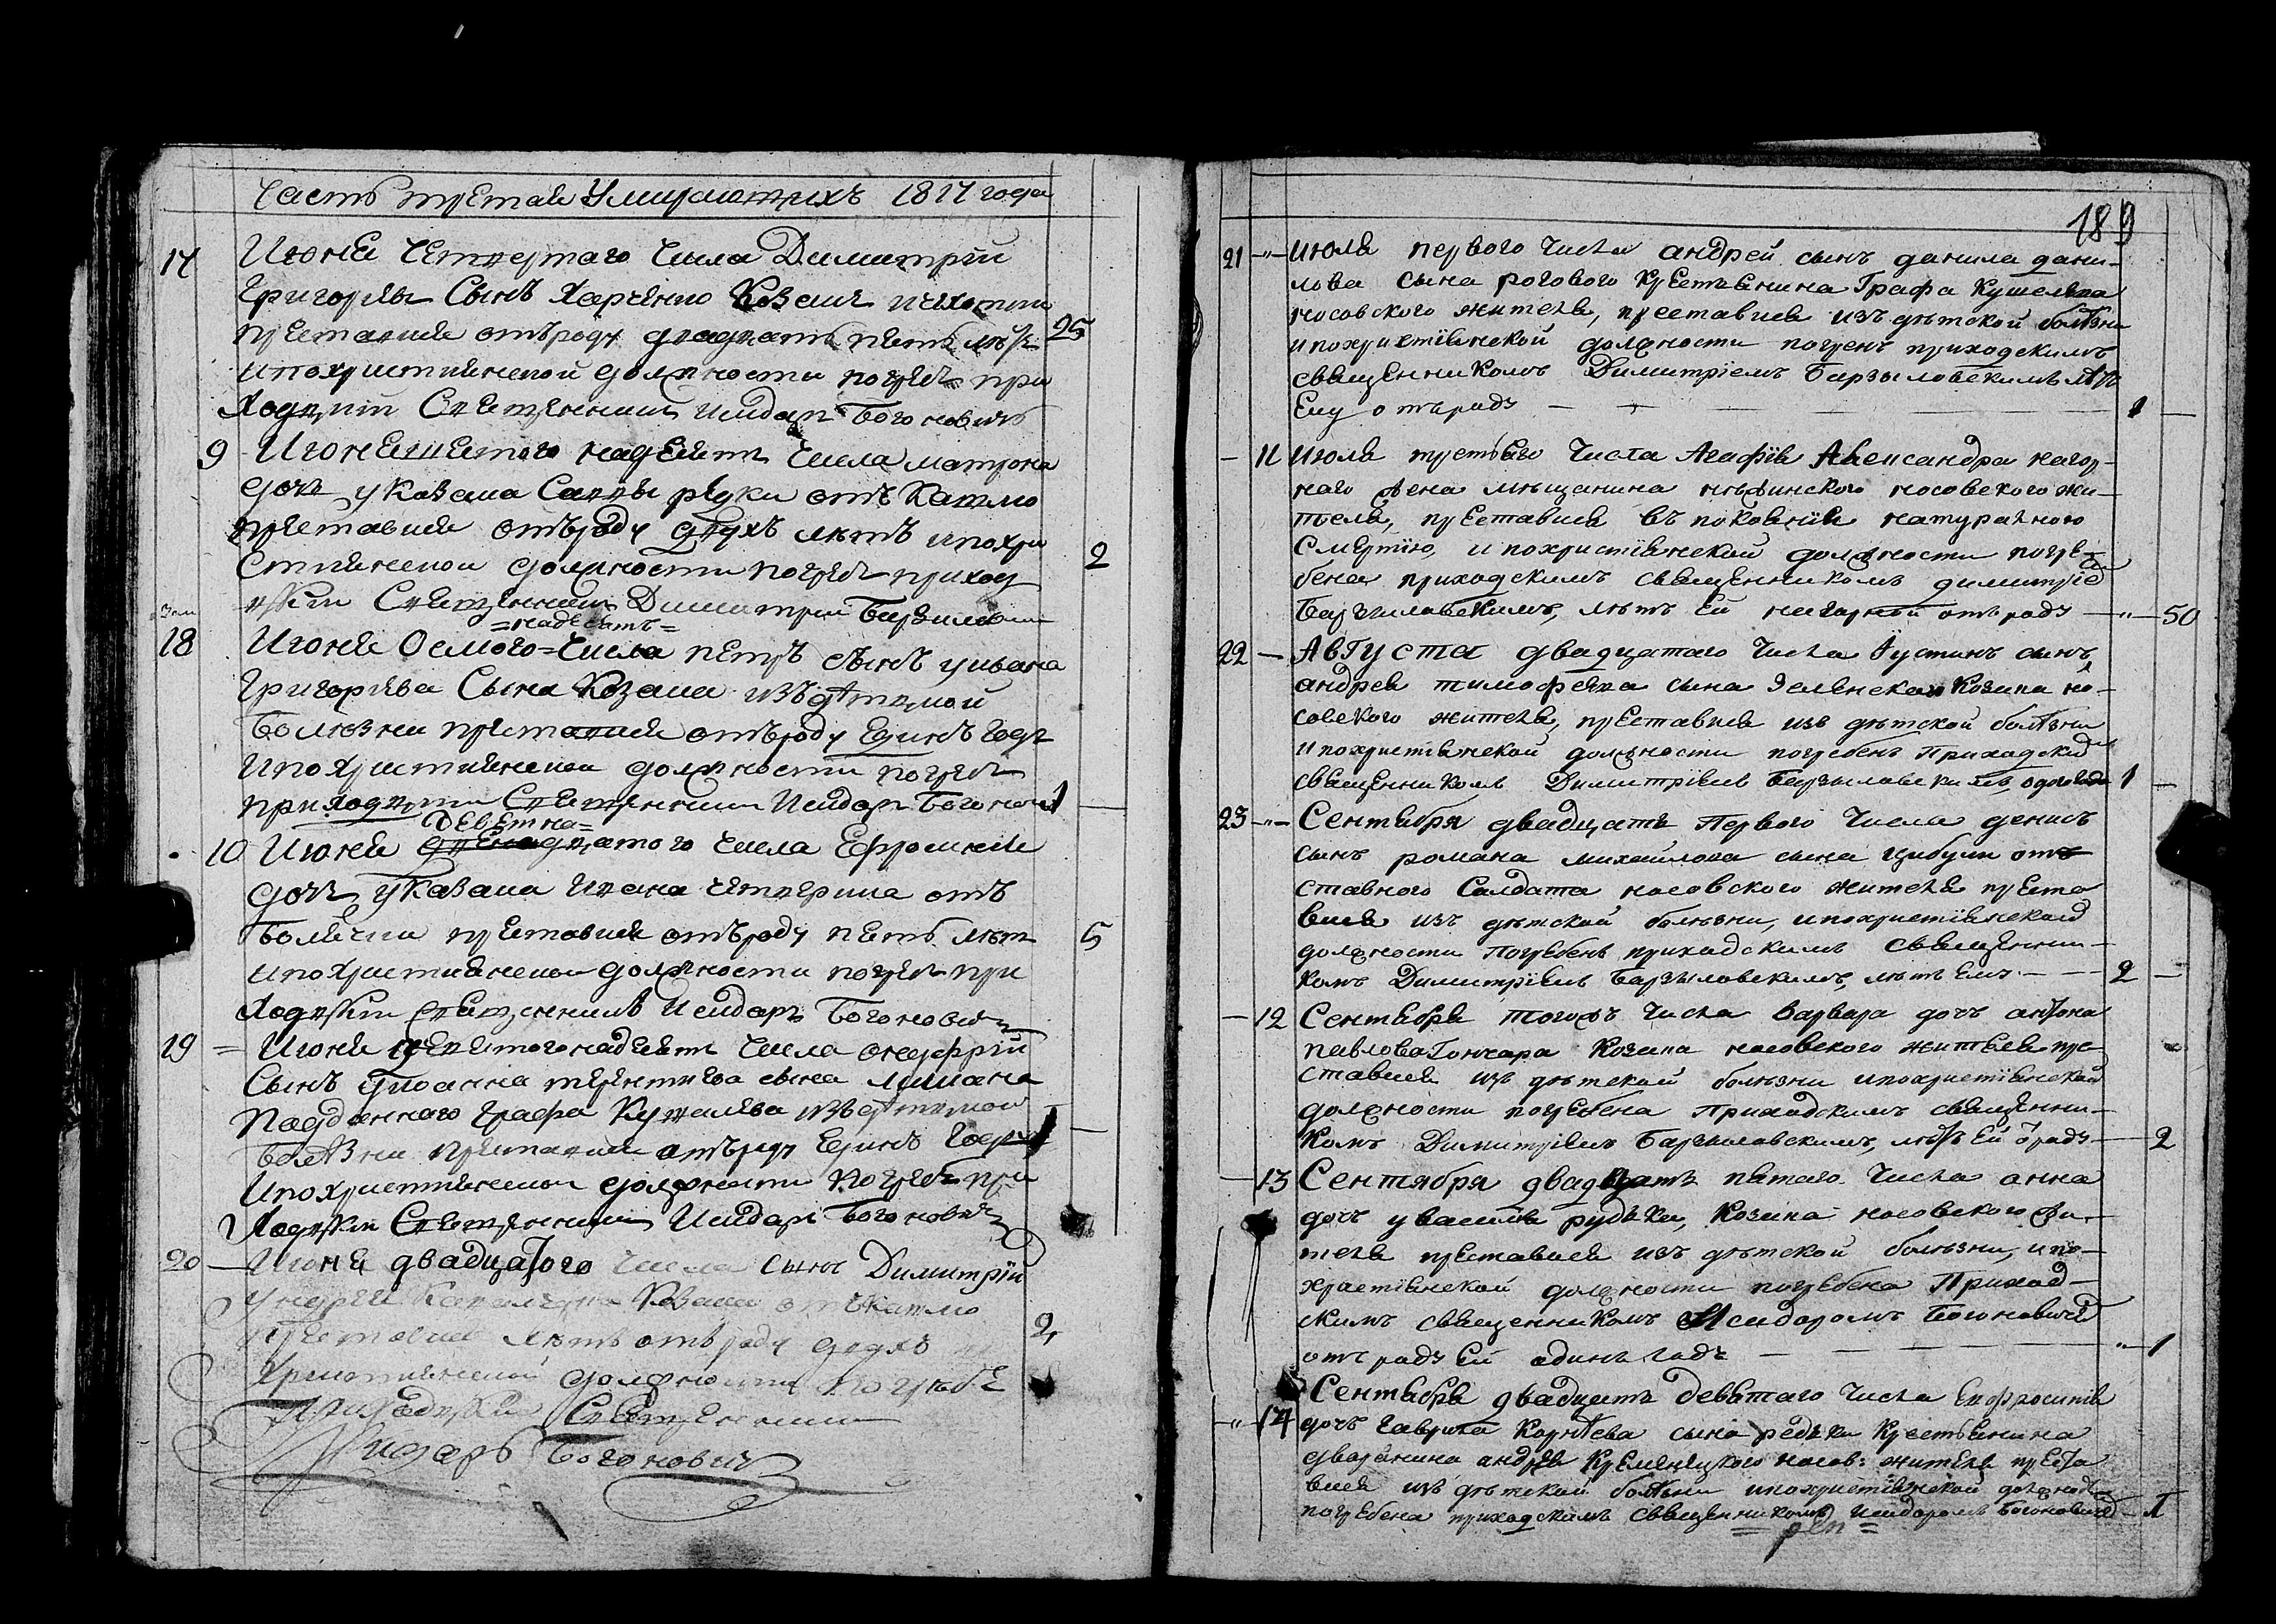 Часть третая Умираютихъ 1817 года
17
Июня Четвертаго Числа Димитрій
Григорiевъ Сынъ Харченко Козакъ
преставися отъроду двадцать пять лѣтъ 25
ипохристиянской должности погребъ при
ходскій Священникъ Исидоръ Богоновичъ
9 Июня надесять Числа матрона
дочь уКозака Саввы редки отъ Кашлю
преставися отъроду двухъ лѣтъ ипохри
стиянской должности погребъ приход 2
скій Священникъ Димитрій Барзилов
=надесять=
18 Июня Осмого=Числа петръ сынъ уивана
Григорiева Сына Козака изъдѣтской
Болѣзни преставися отъроду Единъ годъ
ипохристиянской должности погребъ
приходскій Священникъ Исидоръ Богонов 1
Деветна=
10 Июня цатого Числа Ефросинія
дочь уКозака Ивана Четверика отъ
Болячки преставися отъроду пять лѣтъ 5
ипохристиянской должности погребъ при
ходскій Священникъ Исидоръ Богоновичъ
19 = Июня Числа онуфрій
Сынъ уІоанна терентиева сына
Подданного Графа Кушелева изъдѣтской
Болѣзни преставися отъроду Единъ Годъ 1
ипохристиянской должности погребъ при
Ходскій Священникъ Исидоръ Богоновичъ
20 — Июня двадцатого Числа сынъ Димитрій
Козака отъКашлю
преставися лѣтъ отъроду двухъ 2
Християнской должности погребе
Приходскій Священникъ
Исидоръ Богоновичъ
189
21 -"- июля первого Числа андрей сынъ данила дани-
лова сына рогового Крестьянина Графа Кушелева
носовского жителя, преставися изъ дѣтской болѣзни
ипохристіянской должности погребенъ приходскимъ
священникомъ Димитріемъ Барзыловскимъ лѣтъ
Ему отъроду — — — 1 —
— 11 июля третьяго Числа Агафія Александра нагор-
ного жена мѣщанина нѣжинского носовского жи-
теля, преставися въ покояніи натуральною
Смертію, ипохристіянской должности погре-
бена приходскимъ священникомъ димитріе
Барзиловскимъ, лѣтъ Ей отъ роду —"— 50
22 — Августа двадцатого Числа Іустинъ сынъ
андрея тимофеева сына Зеленского Козака но-
совского жителя, преставися изъ дѣтской болѣзни
ипохристіянской должности погребенъ Приходски
священникомъ Димитріемъ Барзыловскимъ, 1 —
23 -"- Сентября двадцать Первого Числа денисъ
сынъ романа михайлова сына цибули от
ставного Салдата носовского жителя преста
вися изъ дѣтской болѣзни, ипохристіянской
должности Погребенъ приходскимъ священни-
комъ Димитріемъ Барзыловскимъ, лѣтъ Ему — 2 —
— 12 Сентября тогожъ Числа варвара дочь антона
павлова Гончара Козака носовского жителя пре-
ставися изъ дѣтской болѣзни ипохристіянской
должности погребена Приходскимъ священни-
комъ Димитріемъ Барзыловскимъ, лѣтъ Ей — 2
— 13 Сентября двадцать пятого Числа анна
дочь уВасилія рудѣки, Козака носовского жи-
теля преставися изъ дѣтской болѣзни, ипо-
христіянской должности погребена Приход-
скимъ священникомъ Исидоромъ Богоновиче
отъ роду Ей одинъ годъ — — — -"- 1
Сентября двадцать девятаго Числа Евфросинія
-"- 14 дочь гаврила Корнѣева сына редьки Крестьянина
дворянина андрея Кременецкого носов: жителя преста
вися изъ дѣтской болѣзни ипохристіянской
погребена приходскимъ священникомъ Исидоромъ Богоновиче — 1